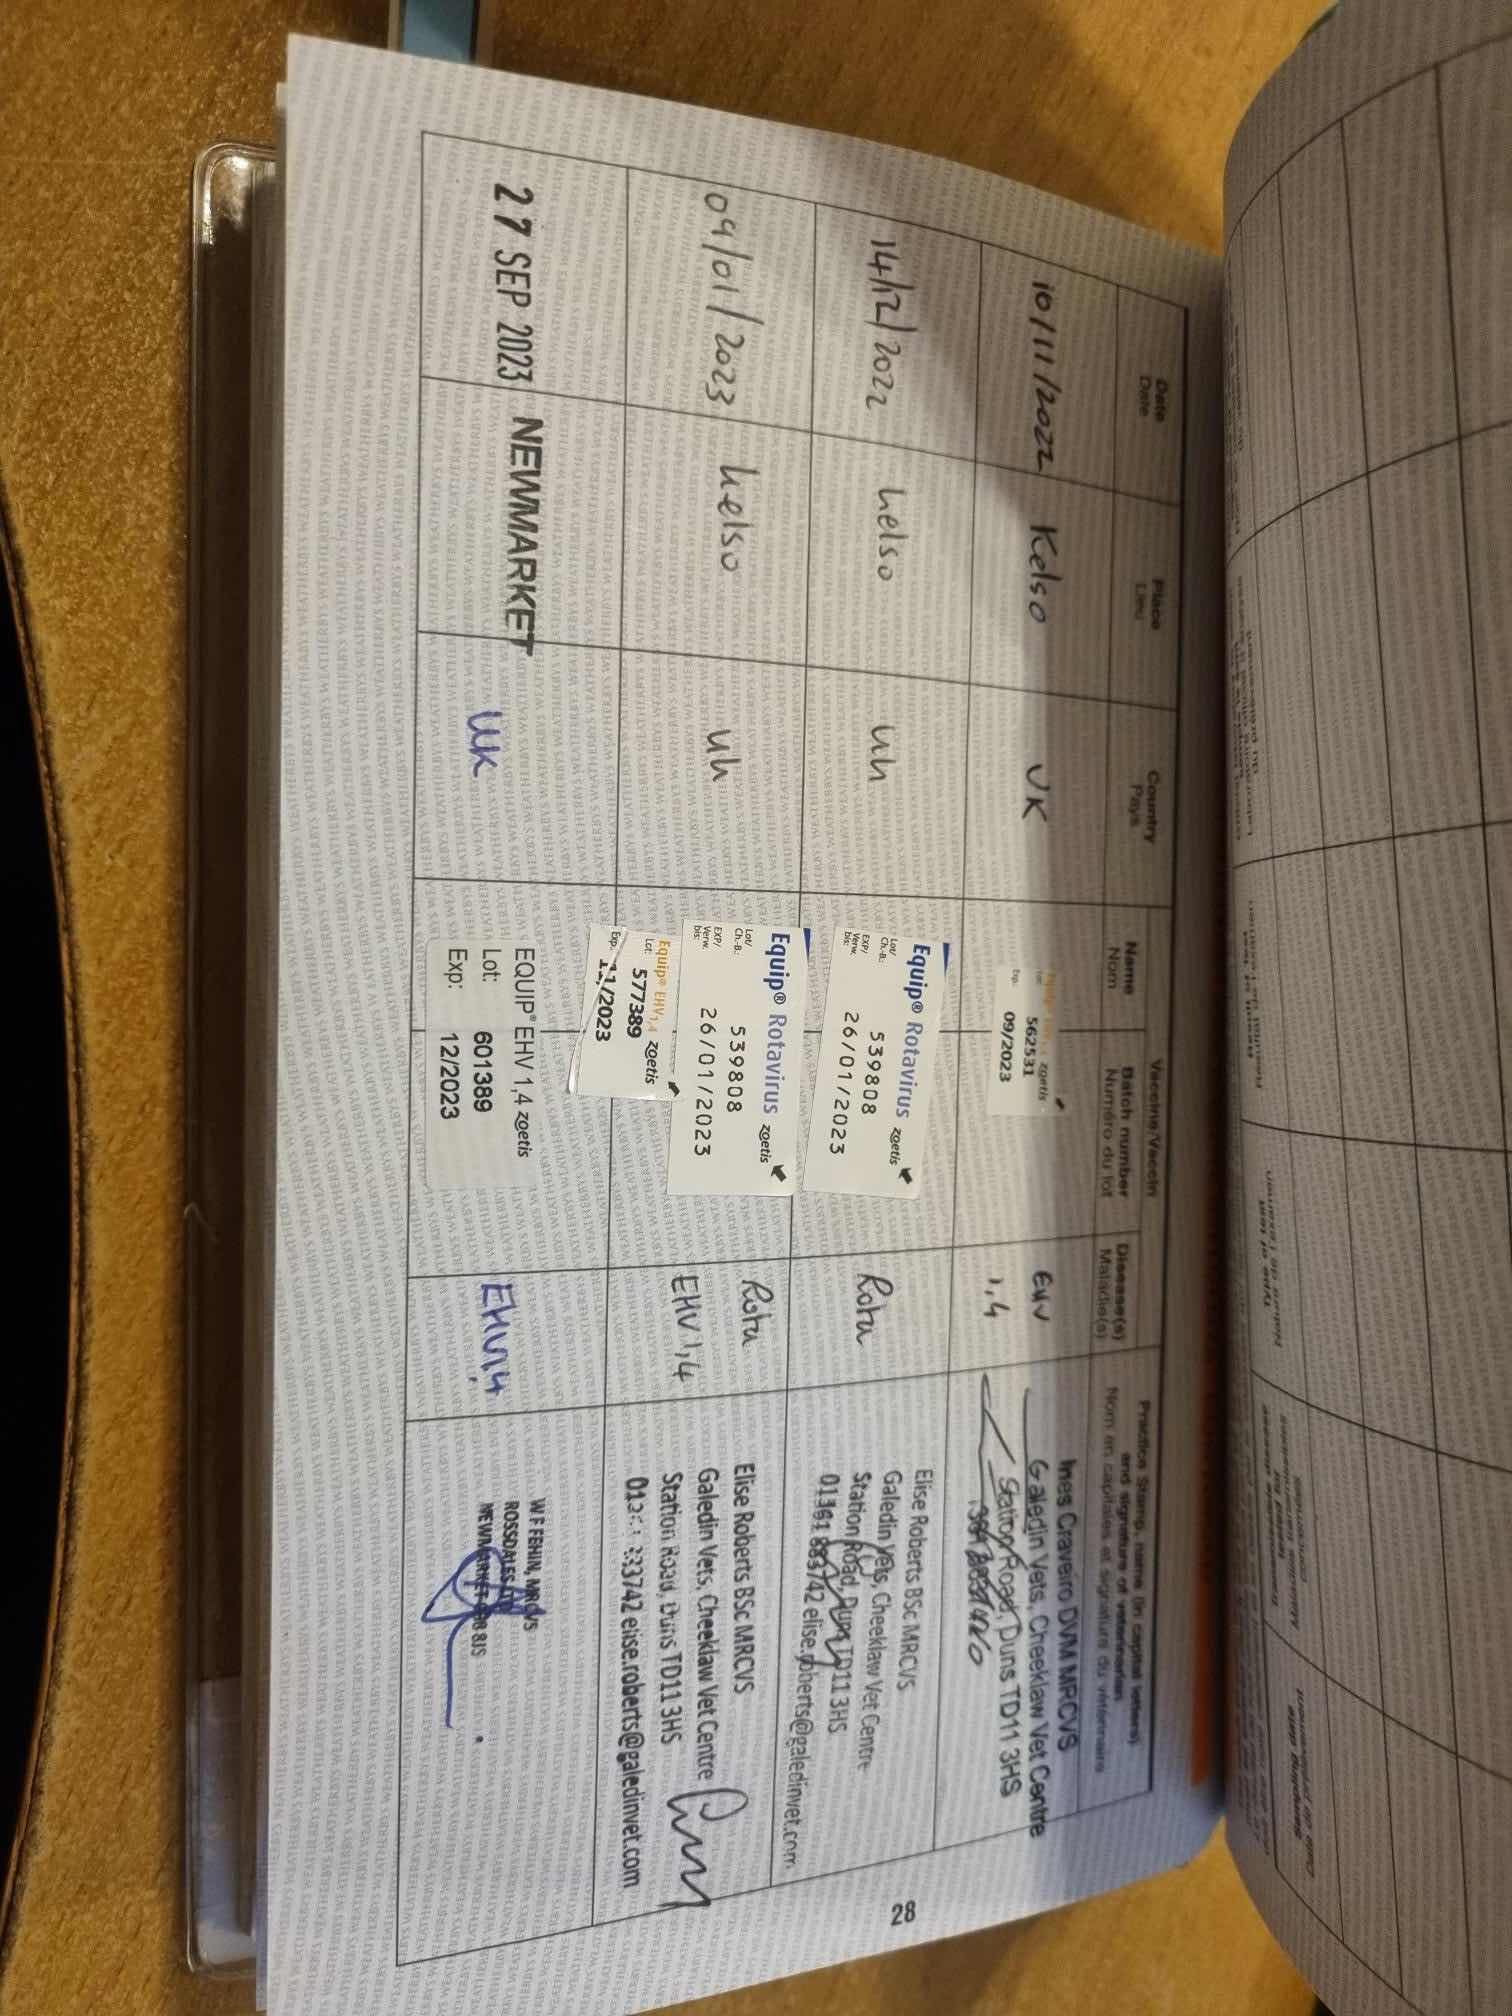 Date
Date
Place
Lieu
Country
Pays
Vaccine/Vaccin
Name
Nom
Batch number
Numéro du lot
Disease(s)
Maladie(s)
Practice Stamp, name (in capital letters)
and signature of veterinarian
Nom en capitales et signature du vétérinaire
10/11/2022
Kelso
UK
zoetis
562531
Exp. 09/2023
EHV
1,4
Ines Craveiro DVM MRCVS
Galedin Vets, Cheeklaw Vet Centre
Station Road, Duns TD11 3HS
14/12/2022
kelso
uk
Equip® Rotavirus zoetis
Lot/
Ch.-B.: 539808
EXP/
Verw.
bis: 26/01/2023
Rota
Elise Roberts BSc MRCVS
Galedin Vets, Cheeklaw Vet Centre
Station Road, Duns TD11 3HS
01361 883742 elise.roberts@galedinvet.com
09/01/2023
kelso
uk
Equip® Rotavirus zoetis
Lot/
Ch.-B.: 539808
EXP/
Verw.
bis: 26/01/2023
Equip® EHV1,4 zoetis
Lot: 577389
Exp. 11/2023
Rota
EHV 1,4
Elise Roberts BSc MRCVS
Galedin Vets, Cheeklaw Vet Centre
Station Road, Duns TD11 3HS
elise.roberts@galedinvet.com
27 SEP 2023
NEWMARKET
UK
EQUIP® EHV 1,4 zoetis
Lot: 601389
Exp: 12/2023
EHV1,4
W F FEHIN, MRCVS
ROSSDALES LTD
NEWMARKET CB8 8JS
28